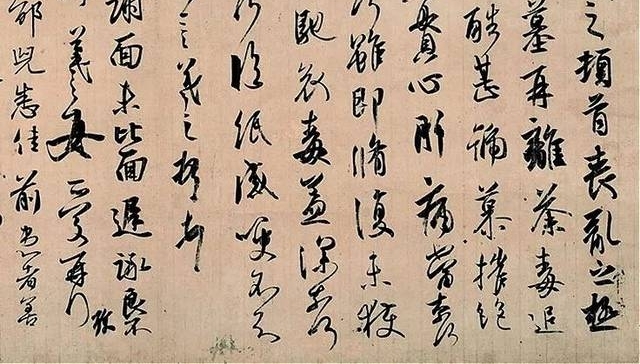 之頓首喪亂之極
墓再離荼毒追
酷甚號慕摧絕
貫心肝痛當奈何
何雖即脩復未獲
馳哀毒益深奈何
何臨紙感哽不知
言羲之頓首
謝面未比面遲詠良不
羲之女愛再拜
邵兒悉佳前患者善